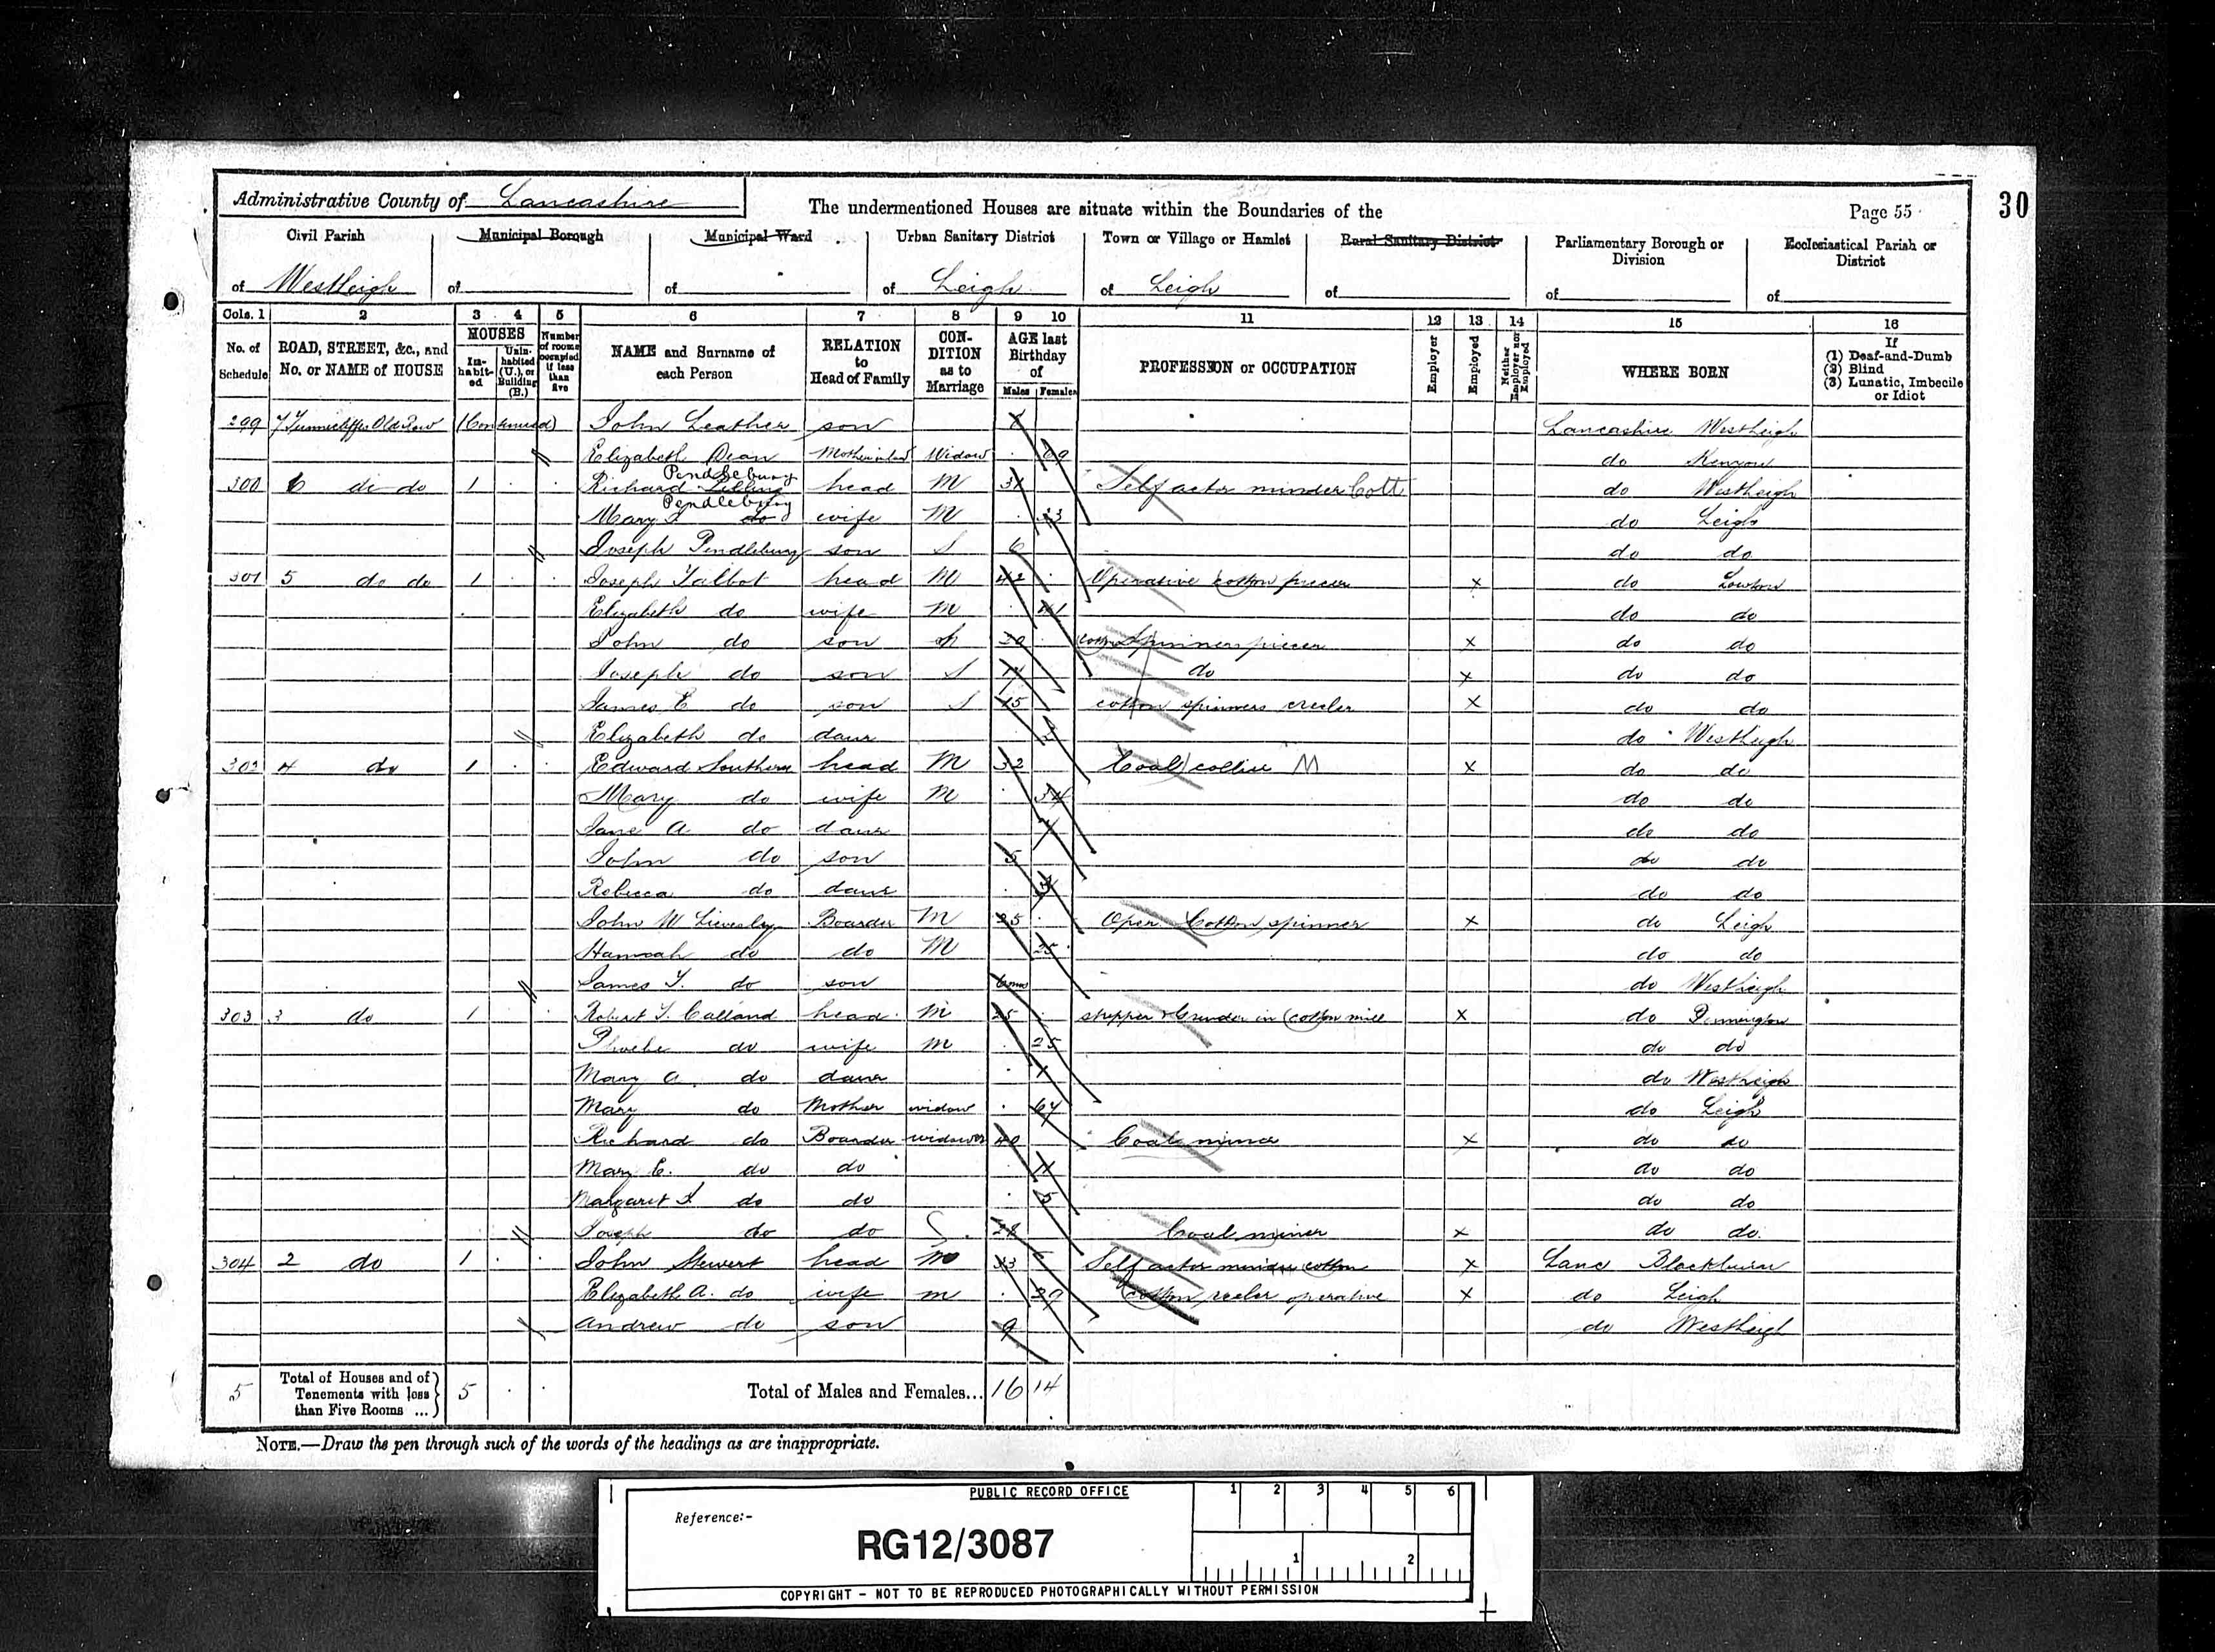 Administrative County of Lancashire The undermentioned Houses are situate within the Boundaries of the Page 55 30
Civil Parish Municipal Borough Municipal Ward Urban Sanitary District Town or Village or Hamlet Rural Sanitary District Parliamentary Borough or Division Ecclesiastical Parish or District
of Westleigh of of of Leigh of Leigh of of of
Cols. 1 2 3 4 5 6 7 8 9 10 11 12 13 14 15 16
No. of Schedule ROAD, STREET, &c., and No. or NAME of HOUSE HOUSES Inhabited Uninhabited (U.), or Building (B.) Number of rooms occupied if less than five NAME and Surname of each Person RELATION to Head of Family CONDITION as to Marriage AGE last Birthday of Males Females PROFESSION or OCCUPATION Employer Employed Neither Employer nor Employed WHERE BORN If (1) Deaf-and-Dumb (2) Blind (3) Lunatic, Imbecile or Idiot
299 7 Tunnicliffes Old Row (Continued) John Leather son Lancashire Westleigh
Elizabeth Dean Mother in law Widow 69 do Kenyon
Pendlebury
300 6 do do 1 Richard head M 31 Self actor minder Cott do Westleigh
Pendlebury
Mary do wife M 23 do Leigh
Joseph Pendlebury son S 6 do do
301 5 do do 1 Joseph Talbot head M 42 Operative cotton piecer x do Lowton
Elizabeth do wife M 41 do do
John do son S 20 cotton Spinners piecer x do do
Joseph do son S 17 do x do do
James E do son S 15 cotton spinners creeler x do do
Elizabeth do daur 2 do Westleigh
302 4 do 1 Edward Southern head M 32 Coal collier M x do do
Mary do wife M 34 do do
Jane A do daur 7 do do
John do son 5 do do
Rebecca do daur do do
John W Lievesley Boarder M 25 Oper Cotton spinner x do Leigh
Hannah do do M 25 do do
James T. do son 6 mo do Westleigh
303 3 do 1 Robert T. Calland head M 25 stripper & Grinder in Cotton mill x do Pennington
Phoebe do wife M 25 do do
Mary A. do daur 1 do Westleigh
Mary do Mother widow 64 do Leigh
Richard do Boarder widower 40 Coal miner x do do
Mary E. do do 11 do do
Margaret do do 5 do do
Joseph do do S. Coal miner x do do.
304 2 do 1 John Stewert head M 33 Self actor minder cotton x Lanc Blackburn
Elizabeth A. do wife m 29 Cotton reeler operative x do Leigh
Andrew do son 9 do Westleigh
5 Total of Houses and of Tenements with less than Five Rooms ... 5 Total of Males and Females... 16 14
NOTE.—Draw the pen through such of the words of the headings as are inappropriate.
PUBLIC RECORD OFFICE 1 2 3 4 5 6
Reference:-
RG12/3087
1 2
COPYRIGHT - NOT TO BE REPRODUCED PHOTOGRAPHICALLY WITHOUT PERMISSION